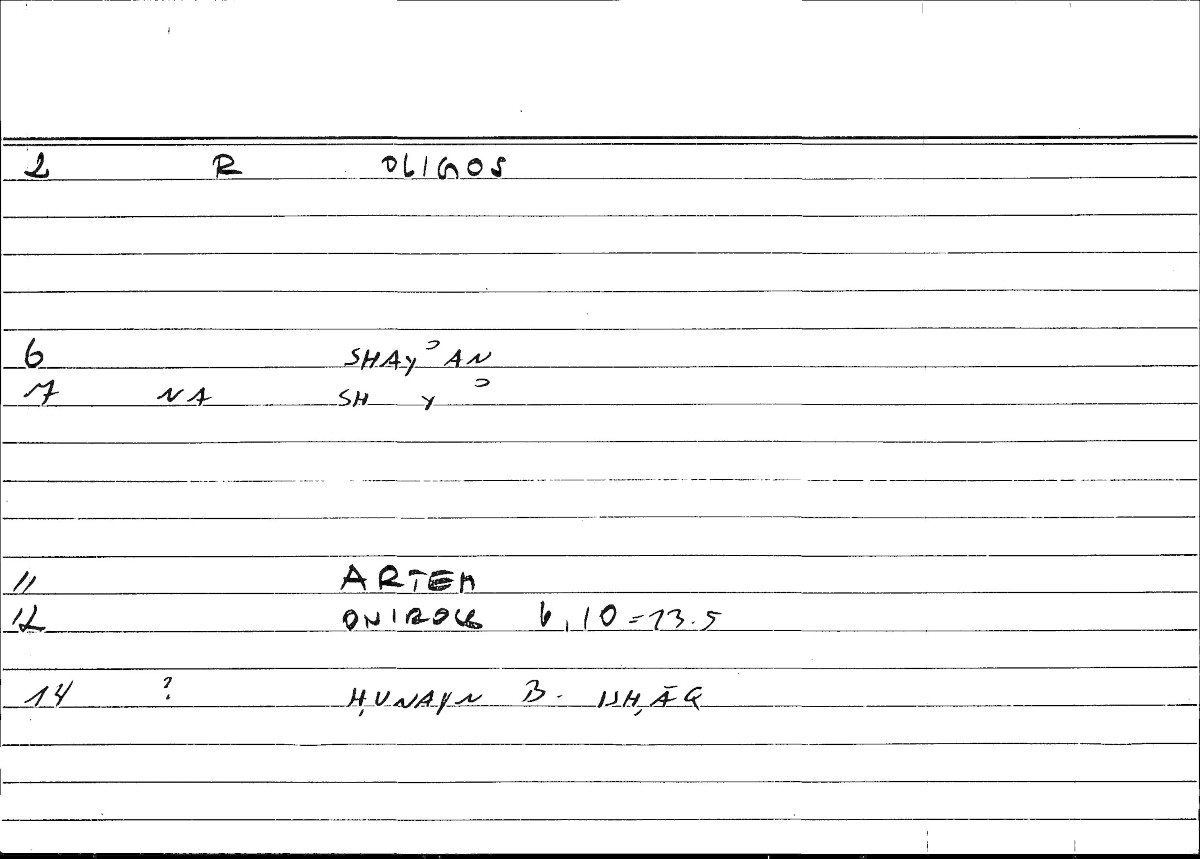 2 R OLIGOS
6 SHAYʾAN
7 NA SH Y ʾ
11 ARTEM
12 ONIROCR 6,10 = 13.5
14 ? ḤUNAYN B. ISḤĀQ